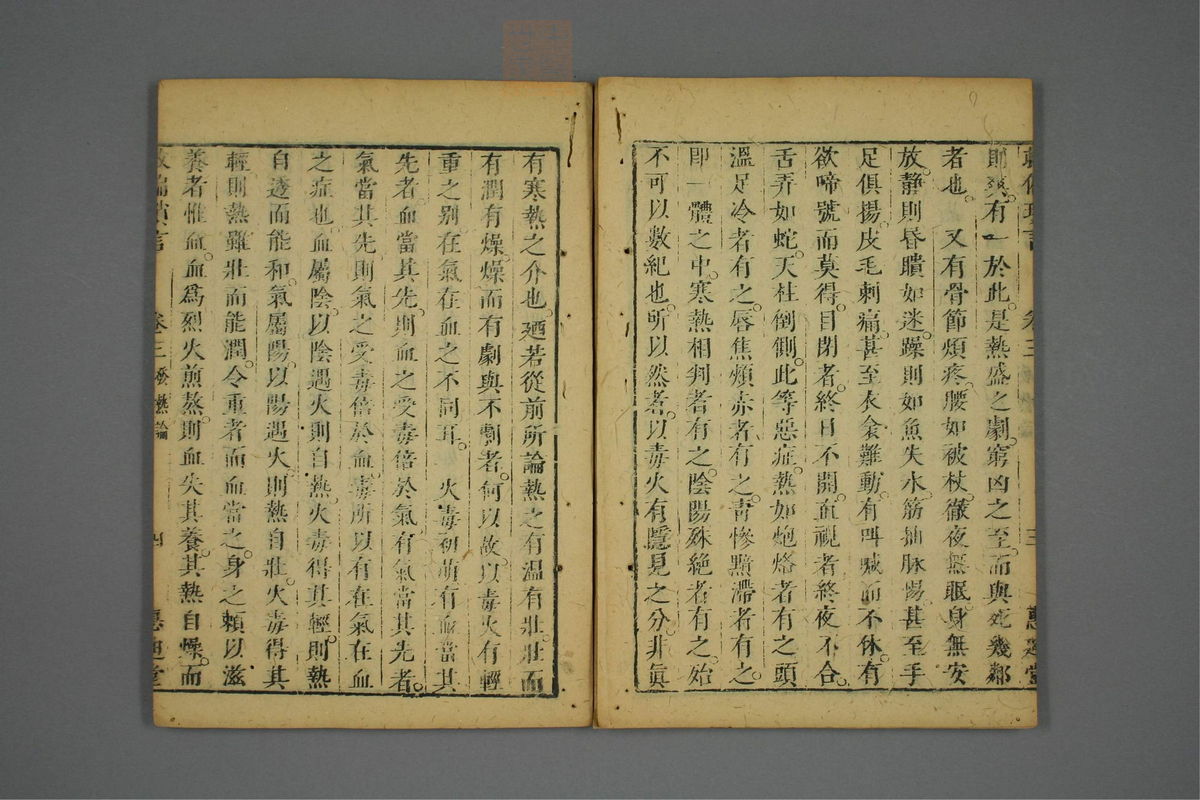 則爽。有一於此。是熱盛之劇。窮凶之至。而與死幾鄰
者也。又有骨節煩疼。腰如被杖。徹夜無眠。身無安
放。靜則昏瞶如迷。躁則如魚失水。筋抽脉惕。甚至手
足俱揚。皮毛刺痛。甚至衣衾難動。有呌喊而不休。有
欲啼號而莫得。目閉者。終日不開。直視者終夜不合。
舌弄如蛇。天柱倒側。此等惡症。熱如炮烙者有之。頭
溫足冷者有之。唇焦頰赤者有之。青慘黯滯者有之。
即一體之中。寒熱相判者有之。陰陽殊絶者有之。殆
不可以數紀也。所以然者。以毒火有隱見之分。非眞
卷三
三
有寒熱之介也。廼若從前所論熱之有溫有壯。壯而
有潤有燥。燥而有劇與不劇者。何以故。以毒火有輕
重之别。在氣在血之不同耳。火毒初萌。有血當其
先者。血當其先。則血之受毒倍於氣。有氣當其先者。
氣當其先。則氣之受毒倍於血。毒所以有在氣在血
之症也。血屬陰。以陰遇火。則自熱。火毒得其輕。則熱
自透而能和。氣屬陽。以陽遇火。則熱自壯。火毒得其
輕。則熱雖壯而能潤。令重者而血當之。身之賴以滋
養者惟血。血爲烈火煎熬。則血失其養。其熱自燥。而
卷三 發熱論
四